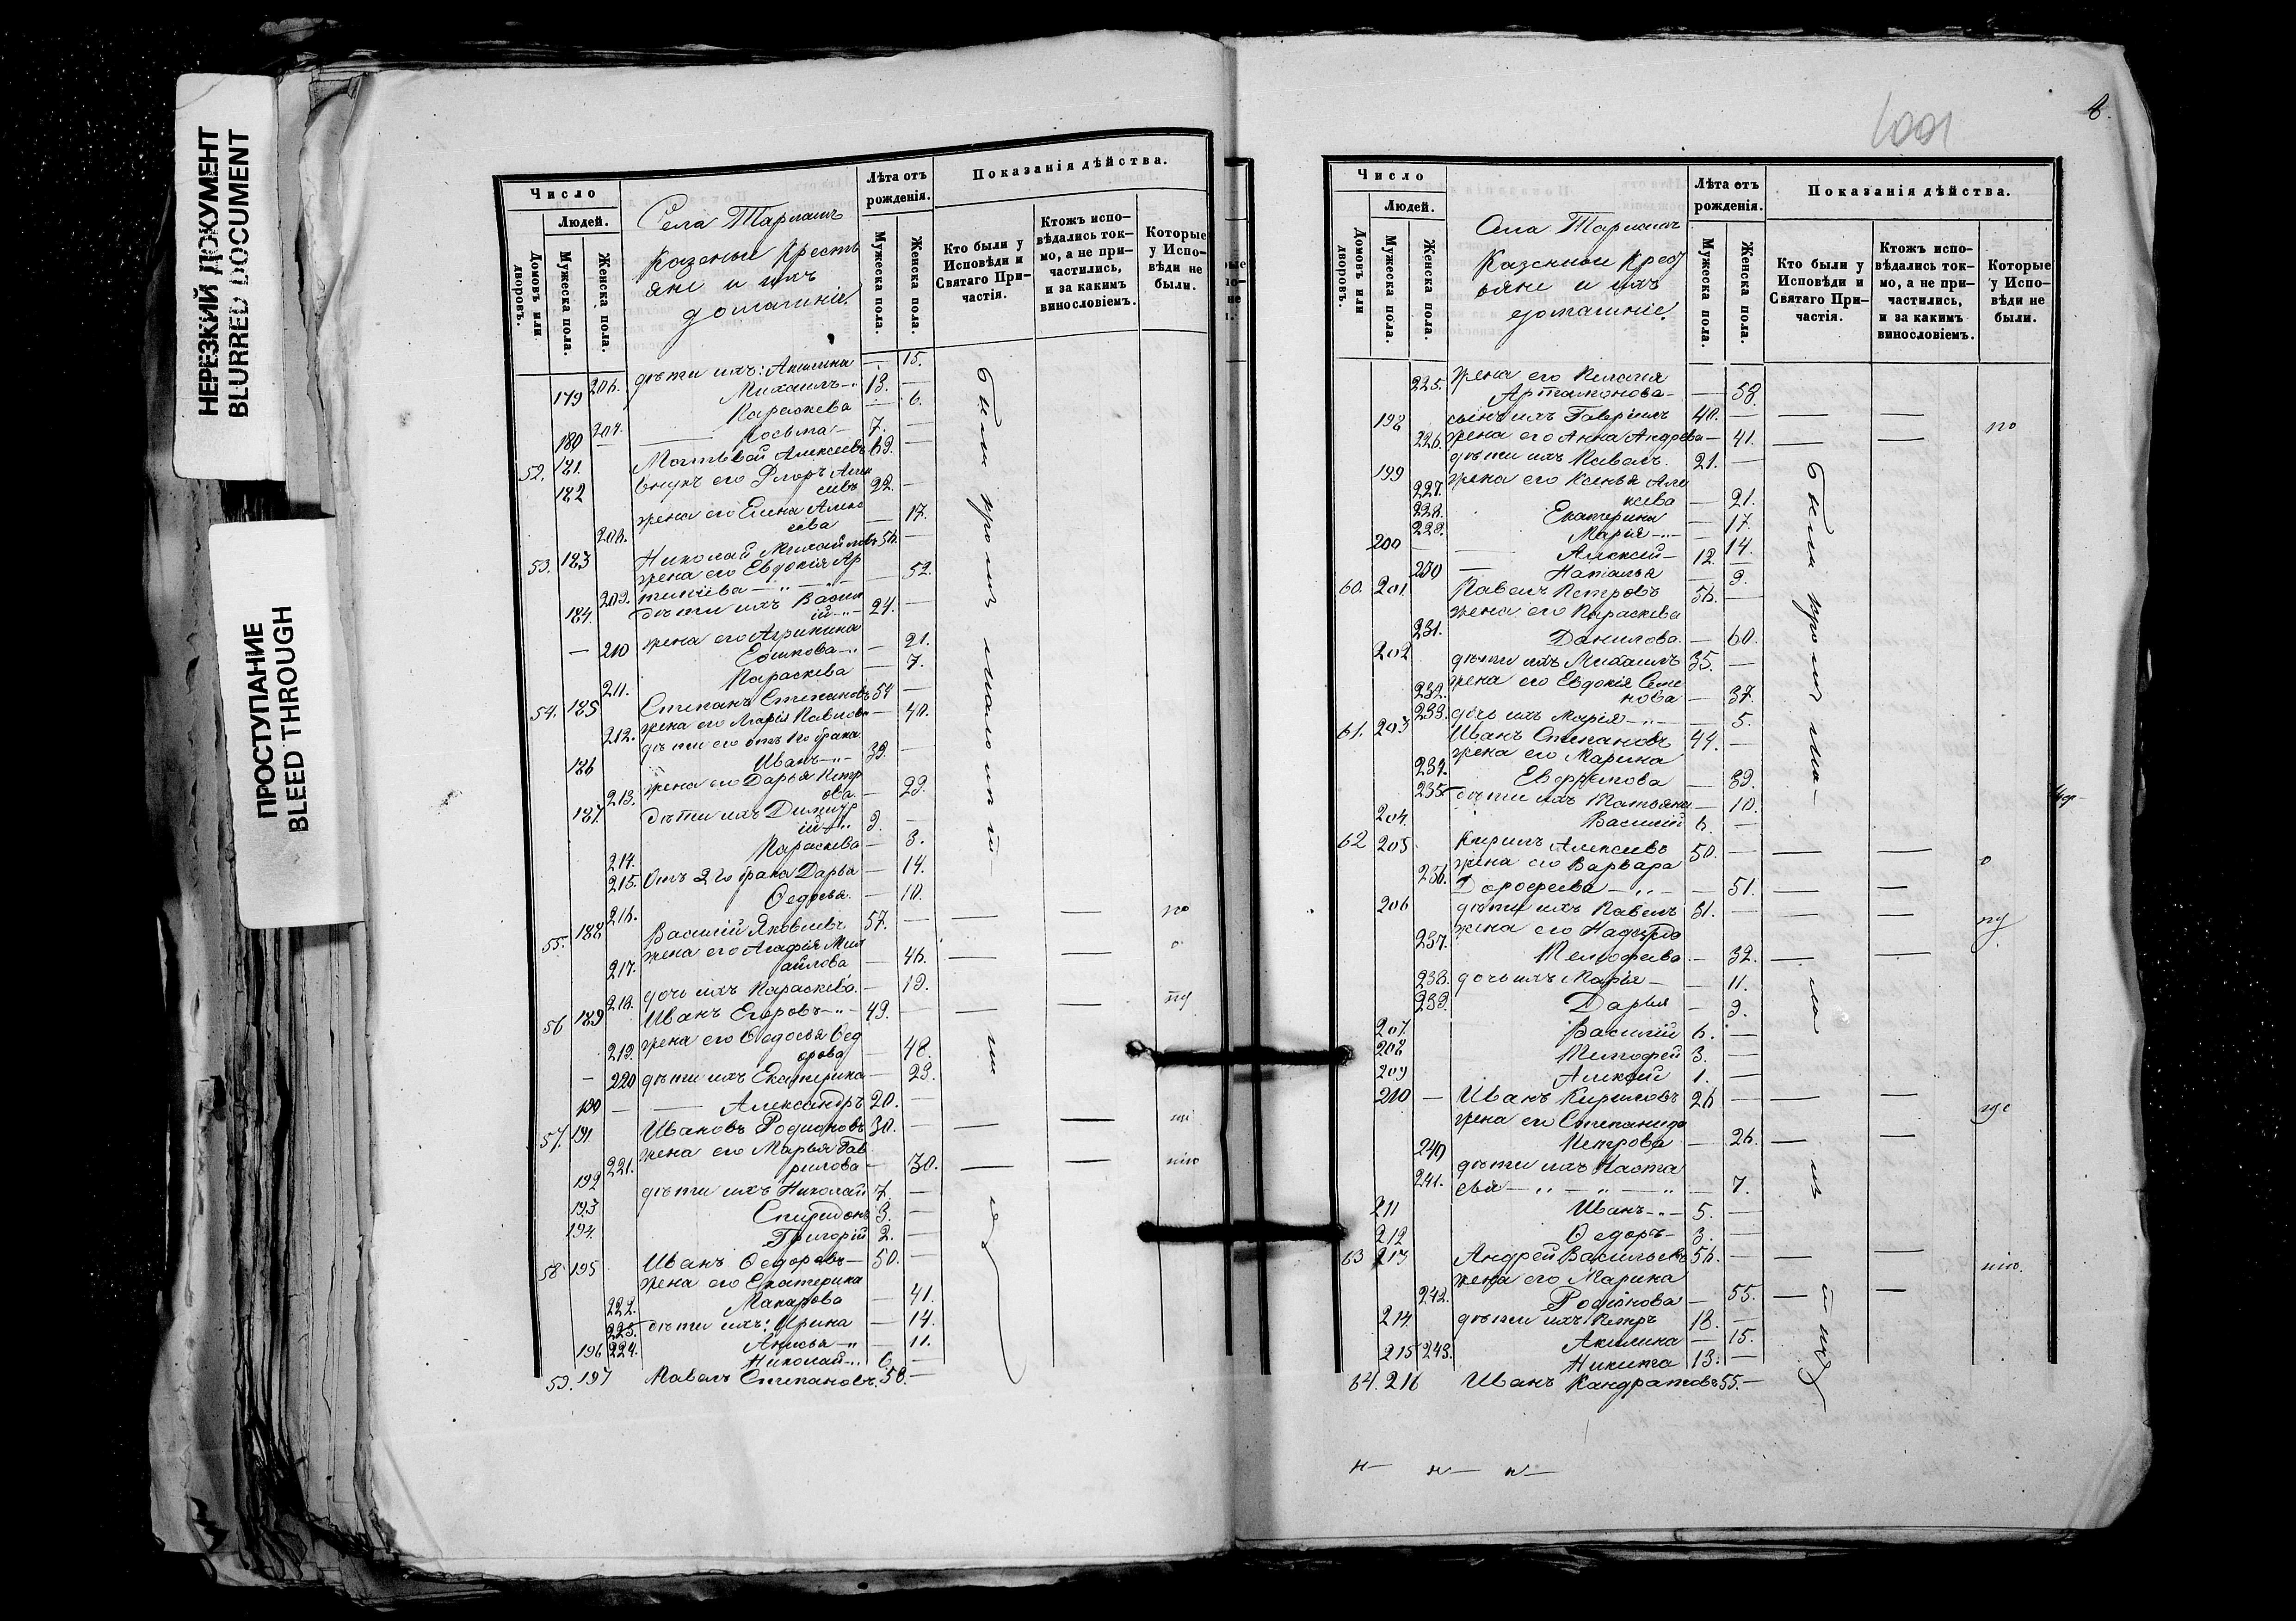 НЕРЕЗКИЙ ДОКУМЕНТ
BLURRED DOCUMENT
ПРОСТУПАНИЕ
BLEED THROUGH
Число
Людей.
Домовъ или дворовъ.
Мужеска пола.
Женска пола.
Села
Казеныи Кресть
яне и ихъ
домашніе.
Лѣта отъ рожденія.
Мужеска пола.
Женска пола.
Показанія дѣйства.
Кто были у Исповѣди и Святаго Причастія.
Ктожъ исповѣдались токмо, а не причастились, и за какимъ винословіемъ.
Которые у Исповѣди не были.
206. дѣти ихъ: Акилина — 15.
179 Михаилъ 13. —
207. Параскева — 6.
180 Косьма 7. —
52. 181. Матвѣй Алексеевъ 69. —
182 внукъ его Алек
сеевъ 22. —
208. жена его Елена Алек
сеева — 17.
53. 183 Николай Михайловъ 56. —
209. жена его Евдокія Ар — 52.
184. дѣти ихъ Васил
ій 24. —
— 210 жена его Агрипина
— 21.
211. Параскева — 7.
54. 185 Степанъ Степановъ 54 —
212. жена его Марія Павлова — 40.
дѣти его отъ 1го брака
186 Иванъ 39. —
213. жена его Дарья Петр
ова. — 29.
187. дѣти ихъ Димитр
ій 9. —
214. Параскева — 3.
215. Отъ 2го брака Дарья — 14.
216. Федосья. — 10.
55. 188 Василій Яковлевъ 57. — — — по
217. жена его Агафія Мих
айлова — 46. — — о
218. дочь ихъ Параскева. — 19.
56 189 Иванъ Егоровъ 49. — — — ну
219. жена его Федосья Фед
орова — 48.
— 220 дѣти ихъ Екатерина — 23.
190 — — Александръ 20. —
57. 191 Ивановъ Родионовъ 30. — — —
221. жена его Марья Гав
рилова — 30. — —
192 дѣти ихъ Николай 7. —
193 Спиридонъ 3. —
194. Григорій 2. —
58 195 Иванъ Федоровъ — 50. —
жена его Екатерина
222. Макарова — 41.
223. дѣти ихъ: Ирина — 14.
224. Анисья — 11.
196 Николай 6. —
59. 197 Павелъ Степановъ. 58. —
были
1001
8.
Число
Людей.
Домовъ или дворовъ.
Мужеска пола.
Женска пола.
Села
Казенные Крест
ьяне и ихъ
домашніе.
Лѣта отъ рожденія.
Мужеска пола.
Женска пола.
Показанія дѣйства.
Кто были у Исповѣди и Святаго Причастія.
Ктожъ исповѣдались токмо, а не причастились, и за какимъ винословіемъ.
Которые у Исповѣди не были.
225. жена его Пелагія
Артамонова — — 58.
198 сынъ ихъ Гавріилъ 40. — — — по
226. жена его Анна Андреева — 41. — —
199 дѣти ихъ Павелъ. 21. —
227. жена его Ксенья Але
ксева — 21.
228. Екатерина — 17.
229. Марія — 14.
200 — — Алексѣй — 12. —
230 — Наталья — 9.
60. 201 Павелъ Петровъ 56. —
жена его Параскева
231. Данилова. — 60.
202 дѣти ихъ Михаилъ 35. —
232. жена его Евдокія Семе
нова — 37.
233. дочь ихъ Марія — 5.
61. 203 Иванъ Степановъ 44. —
жена его Марина
234. Ефремова — 39.
235 дѣти ихъ Татьяна — 10.
204. Василій 6. —
62 205 Кирилъ Алексеевъ 50. — — — о
236. жена его Варвара
Дорофеева — — 51. — —
206 дѣти ихъ Павелъ 31. — — — ну
237. жена его Надежда
Тимофеева — 32. — —
238. дочь ихъ Марья — — 11.
239. Дарья — 9.
207. Василій 6. —
208 Тимофей 3. —
209 Алексѣй 1. —
210 — Иванъ Кириловъ 26 — — —
жена его Степанида
240 Петрова — 26. — —
241. дѣти ихъ Наста
сья — — 7.
211 Иванъ 5. —
212 Федоръ — 3. —
63 213 Андрей Васильевъ 56. — — —
жена его Марина
242. Родіонова — 55. — —
214. дѣти ихъ Петръ 18. —
243. Акилина — 15.
215 Никита 13. —
64. 216 Иванъ Кандратовъ 55. —
были